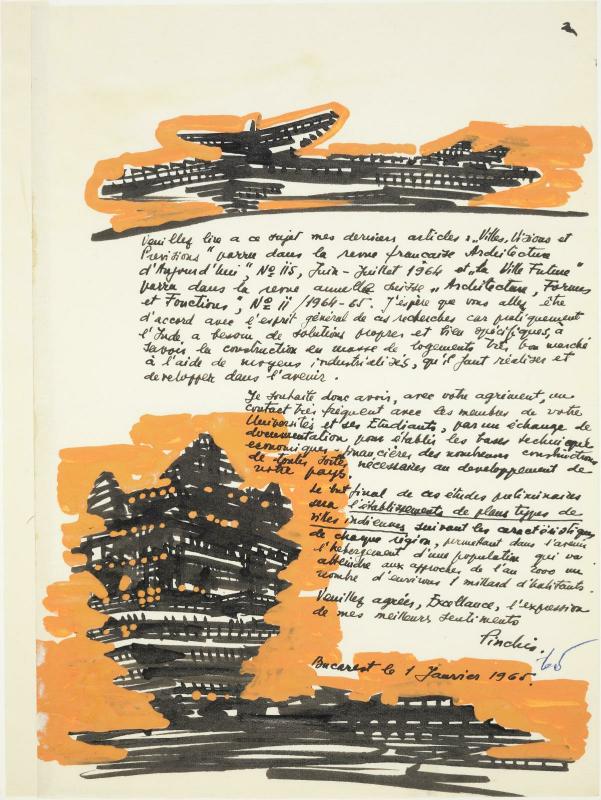 Veuillez lire a ce sujet mes derniers articles: „Villes, Visions et
Previsions" parru dans la revue francaise Architecture
d'Aujourd'hui", No 115, Juin-Juillet 1964 et „La Ville Future"
parru dans la revue annuelle suisse „Architecture, Formes
et Fonctions", No 11/1964-65. J'éspère que vous allez être
d'accord avec l'esprit général de ces recherches car pratiquement
l'Inde a besoin de solutions propres et bien spécifiques, à
savoir la construction en masse de logements très bon marché
à l'aide de moyens industrialisés, qu'il faut réaliser et
developper dans l'avenir.
Je souhaite donc avoir, avec votre agrément, un
contact très fréquent avec les membres de votre
Universités et ses Etudiants, par un échange de
documentation pour établir les bases technique
economiques-financières des nombreuses constructions
de toutes sortes, nécessaires au developpement de
votre pays.
Le but final de ces études preliminaires
sera l'établissements de plans types de
villes indiennes suivant les caractéristiques
de chaque région, permettant dans l'avenir
l'hébergement d'une population qui va
atteindre aux approches de l'an 2000 un
nombre d'environs 1 milliard d'habitants.
Veuillez agréer, Excellance, l'expression
de mes meilleurs sentiments
Pinchis.
65
Bucarest le 1 Janvier 1965.